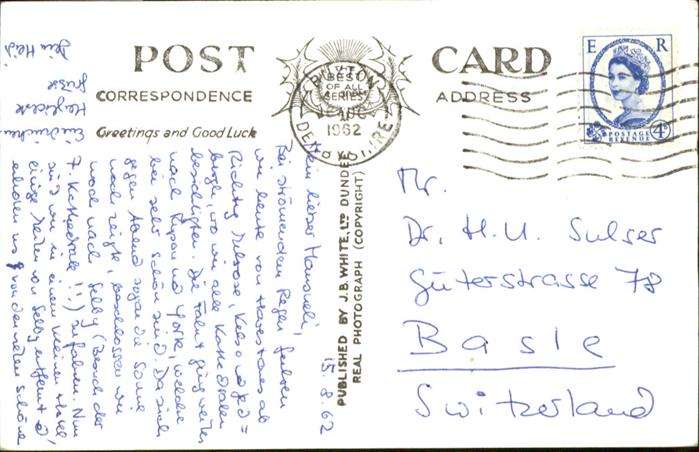 POST CARD
CORRESPONDENCE
ADDRESS
Greetings and Good Luck
THE
BEST
OF ALL
SERIES
1962
E R
POSTAGE
REVENUE
4D
PUBLISHED BY J.B. WHITE, LTD DUNDEE
REAL PHOTOGRAPH (COPYRIGHT)
15.8.62
Mein lieber Hansueli,
Bei strömendem Regen fuhren
wir heute von Harestanes ab
Richtung Melrose, Kelso und Jed=
burgh, wo wir alle Kathedralen
besichtigten. Die Fahrt ging weiter
nach Ripon und York, welche
beide sehr schön sind. Da sich
gegen Abend sogar die Sonne
noch zeigte, beschlossen wir
noch nach Selby (Besuch der
7. Kathedrale !!!) zu fahren. Nun
sind wir in einem kleinen Hotel,
einige Meilen von Selby entfernt und
erholen uns von den vielen schönen
Eindrücken
Herzlichst
grüsst
Dein Heidi
Mr.
Dr. H. U. Sulser
Güterstrasse 78
Basle
Switzerland